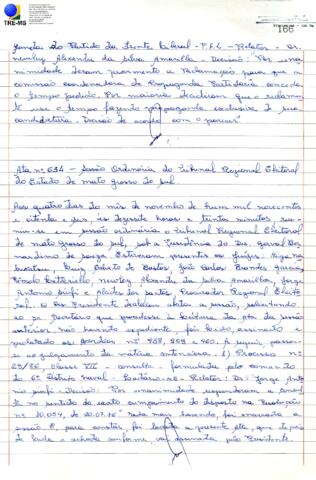 TRE-MS
166
do Partido da Frente Liberal - P.F.L. - Relator - Dr.
Newley Alexandre da Silva Amarilla - Decisão: Por una-
nimidade deram provimento a Reclamação para que a
comissão de Propaganda Partidária conceda
o tempo pedido. Por maioria decidiram que o reclaman-
te use o tempo fazendo propaganda exclusiva de sua
candidatura. Decisão de acordo com o parecer"
Ata nº 694 - Sessão Ordinária do Tribunal Regional Eleitoral
do Estado de Mato Grosso do Sul.
Aos quatro dias do mês de novembro de hum mil novecentos
e oitenta e seis, às dezessete horas e trinta minutos reu-
niu-se em sessão ordinária o Tribunal Regional Eleitoral
de Mato Grosso do Sul, sob a Presidência do Des. Gerval Ber-
nardino de Souza. Estiveram presentes os Juízes:
de Castro, José Carlos Brandes
Newley Alexandre da Silva Amarilla, Jorge
Antonio e dos Santos, Procurador Regional Eleito-
ral. O Des. Presidente declarou aberta a sessão, solicitando
ao Sr. Secretário que procedesse à leitura da ata da sessão
anterior. Não havendo expediente, foi lido, assinado e
publicado os Acórdãos nºs 458, 459 e 460. A seguir, passou-
se ao julgamento da matéria extensiva. 1) Processo nº
Classe VII - consulta - formulada pelo comando
do 6º Distrito Naval - Ladário-MS - Relator: Dr. Jorge Anto-
nio - Decisão: Por unanimidade responderam a consul-
ta no sentido do exato cumprimento do disposto na Resolução
nº
Nada mais havendo, foi encerrada a
sessão. E, para constar, foi lavrada a presente ata, que depois
de lida e achada conforme vai assinada pelo Presidente.